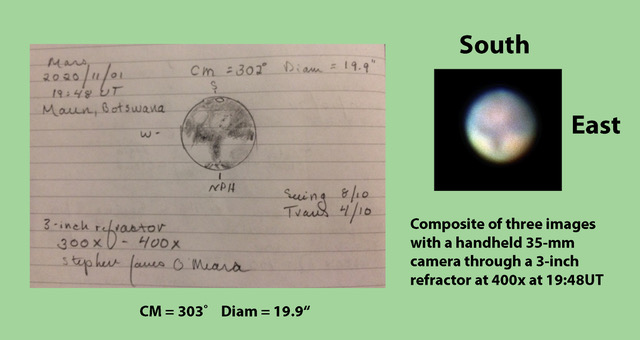 Mars
2020/11/01
19:48 UT
Maun, Botswana
CM = 303° Diam = 19.9"
S
W-
NPH
Seeing 8/10
Trans 4/10
3-inch refractor
300x - 400x
Stephen James O'Meara
CM = 303° Diam = 19.9“
South
East
Composite of three images
with a handheld 35-mm
camera through a 3-inch
refractor at 400x at 19:48UT